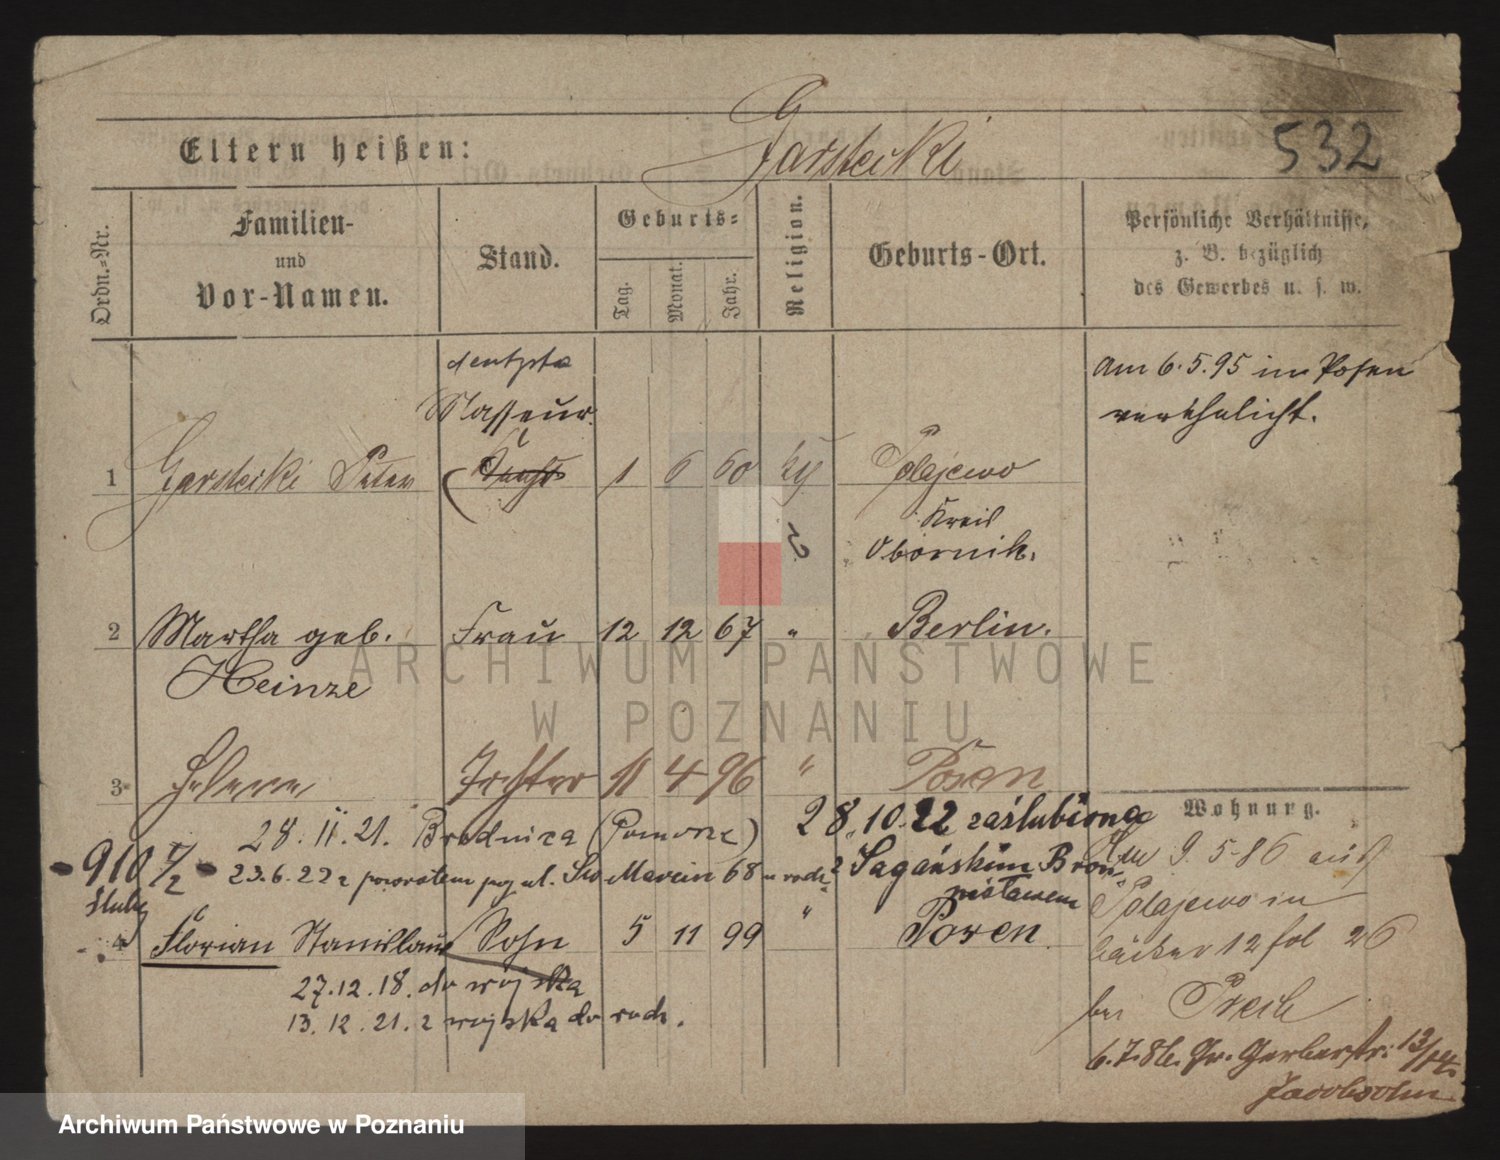 Eltern heißen:
Garstecki
532
Ordn.-Nr.
Familien-
und
Vor-Namen.
Stand.
Geburts-
Tag.
Monat.
Jahr.
Religion.
Geburts-Ort.
Persönliche Verhältnisse,
z. B. bezüglich
des Gewerbes u. s. w.
dentysta
Masseur.
am 6.5.95 in Posen
verehelicht.
1 Garstecki Peter 1 6 60 Polajewo
Kreis
Obornik.
2 Martha geb. Frau 12 12 67 " Berlin.
Heinze
3 Helene Tochter 11 4 96 " Posen
28.11.21. Brodnica (Pomorze) 28.10.22 zaślubiona
910 2 23.6.22 z powrotem ul. Św Marcin 68 Sagańskim Bron
śluby nisławem
4 Florian Stanislaus Sohn 5 11 99 " Posen
27.12.18. do wojska
13.12.21. z wojska do rodz.
Wohnung.
9.5.86 aus
Polajewo in
12 fol 26
bei
6.7.86. Gr. Gerberstr. 13/14.
Jacobsohn
ARCHIWUM PAŃSTWOWE
W POZNANIU
Archiwum Państwowe w Poznaniu